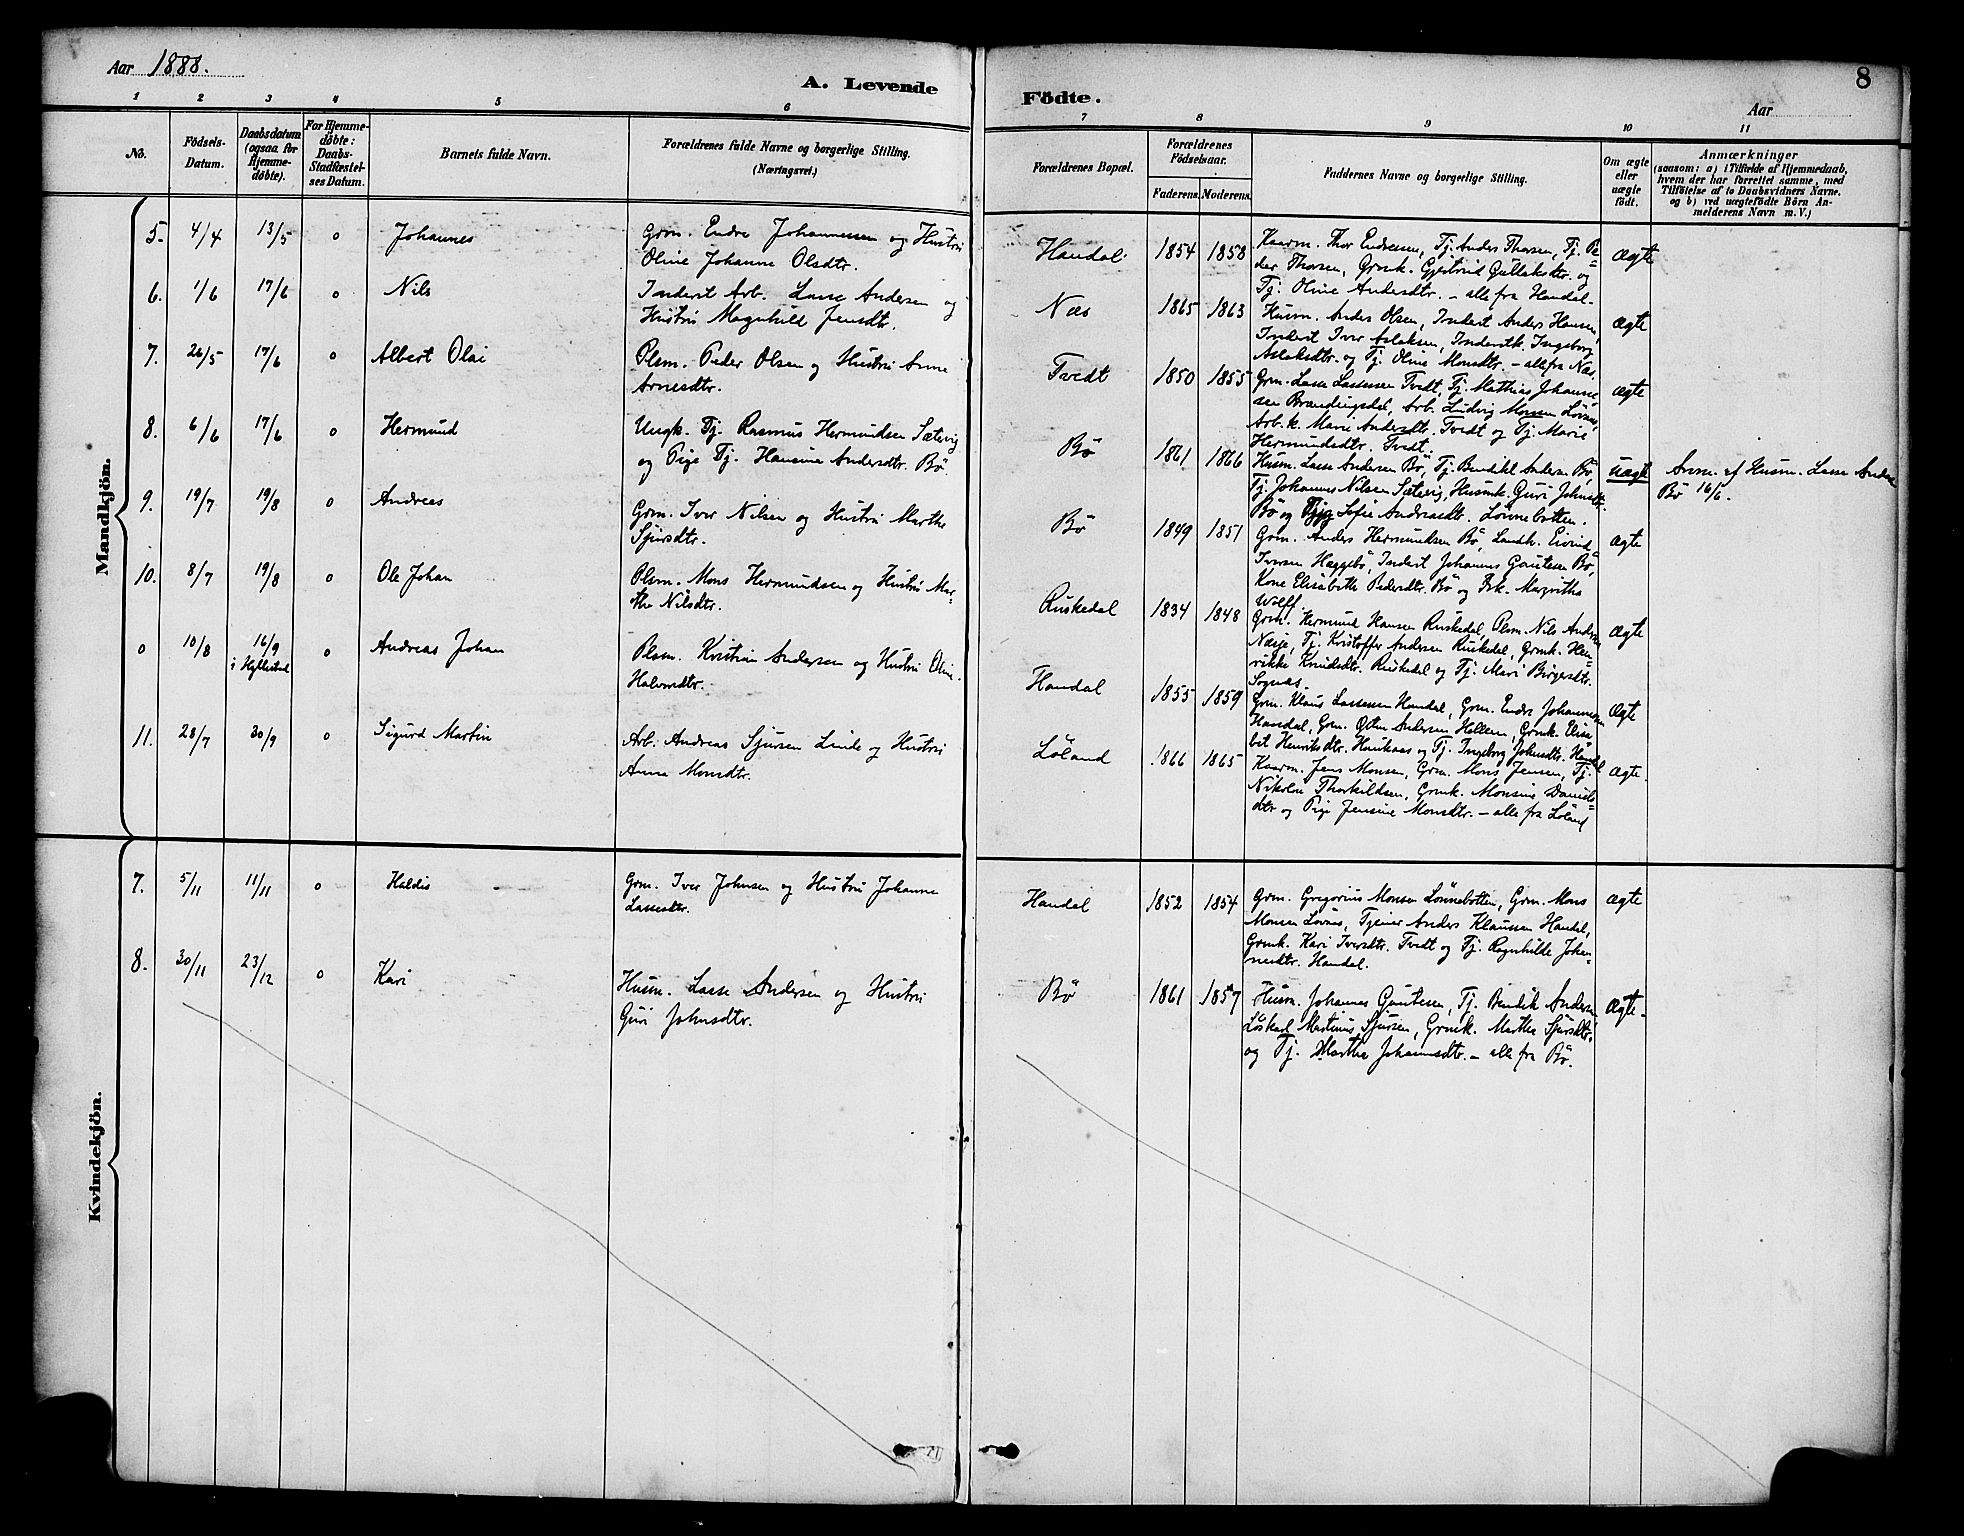 Aar 1888.
A. Levende
Födte.
8
Aar
1 2 3 4 5 6 7 8 9 10 11
No.
Födsels-
Datum.
Daabsdatum
(ogsaa for
Hjemme-
döbte).
For Hjemme-
döbte:
Daabs-
Stadfæstel-
ses Datum.
Barnets fulde Navn.
Forældrenes fulde Navne og borgerlige Stilling.
(Næringsvei.)
Forældrenes Bopæl.
Forældrenes
Födselsaar.
Faderens. Moderens.
Faddernes Navne og borgerlige Stilling.
Om ægte
eller
uægte
födt.
Anmærkninger
(saasom: a) i Tilfælde af Hjemmedaab,
hvem der har forrettet samme, med
Tilföielse af to Daabsvidners Navne.
og b) ved uægtefödte Börn An-
melderens Navn m. V.)
Mandkjön.
5. 4/4 13/5 o Johannes
Grm. Endre Johannessen og Hustru
Oline Johanne Olsdtr.
Handal 1854 1858
Kaarm. Thor Endresen, Tj. Anders Thorsen, Tj. Pe=
der Thorsen, Grmk. Gjertrud Gullaksdtr. og
Tj. Oline Andersdtr. - alle fra Handal.
ægte
6. 1/6 17/6 o Nils
Inderst Arb. Lasse Andersen og
Hustru Magnhild Jensdtr.
Næs 1865 1863
Husm. Anders Olsen, Inderst Anders Hansen,
Inderst Iver Aslaksen, Inderstk. Ingeborg
Aslaksdtr. og Tj. Oline Monsdtr. - alle fra Næs.
ægte
7. 26/5 17/6 o Albert Olai
Plsm. Peder Olsen og Hustru Anne
Arnesdtr.
Tvedt 1850 1855
Grm. Lasse Lassesen Tvedt, Tj. Mathias Johanne
sen Brændingsdal, Arb. Ludvig Monsen Lövaas,
Arb.k. Marie Andersdtr. Tvedt og Tj. Marie
Hermundsdtr. Tvedt.
ægte
8. 6/6 17/6 o Hermund
Ungk. Tj. Rasmus Hermundsen Sætevig
og Pige Tj. Hansine Andersdtr. Bö.
Bö 1861 1866
Husm. Lasse Andersen Bö, Tj. Bendikt Anders. Bö,
Tj. Johannes Nilsen Sætevig, Husmk. Guri Johnsdtr.
Bö og Pige Sofie Andreasdtr. Lönnebotten.
uægte
Anm. af Husm. Lasse Anders
Bö 16/6.
9. 19/7 19/8 o Andreas
Grm. Iver Nilsen og Hustru Marthe
Sjursdtr.
Bö 1849 1851
Grm. Anders Hermundsen Bö, Landh. Eivind
Iversen Hæggebö, Inderst Johannes Gautesen Bö,
Kone Elisabeth Pedersdtr. Bö og Frk. Magritha
Wolff.
ægte
10. 8/7 19/8 o Ole Johan
Plsm. Mons Hermundsen og Hustru Mar-
the Nilsdtr.
Ruskedal 1834 1848
Grm. Hermund Hansen Ruskedal, Plsm. Nils Anders
Næsje, Tj. Kristoffer Andersen Ruskedal, Grmk. Hen-
rikke Knudsdtr. Ruskedal og Tj. Mari Birgersdtr.
Sognæs.
ægte
o 10/8 16/9 o Andreas Johan
i Hyllestad
Plsm. Kristian Andersen og Hustru Oline
Halvorsdtr.
Handal 1855 1859
Grm. Klaus Lassesen Handal, Grm. Endre Johannessen
Handal, Grm. Otter Andersen Hellem, Grmk. Elisa
bet Henriksdtr. Haukaas og Tj. Ingeborg Johnsdtr. Handal
ægte
11. 28/7 30/9 o Sigurd Martin
Arb. Andreas Sjursen Linde og Hustru
Anna Monsdtr.
Löland 1866 1865
Kaarm. Jens Monsen, Grm. Mons Jensen, Tj.
Nikolai Thorkildsen, Grmk. Monsine Daniels=
dtr og Pige Jensine Monsdtr. - alle fra Löland
ægte.
Kvindekjön.
7. 5/11 11/11 o Haldis
Grm. Iver Johnsen og Hustru Johanne
Lassesdtr.
Handal 1852 1854
Grm. Gregorius Monsen Lönnebotten, Grm. Mons
Monsen Lövaas, Tjener Anders Klaussen Handal,
Grmk. Kari Iversdtr. Tvedt og Tj. Ragnhilde Johan-
nesdtr. Handal.
ægte
8. 30/11 23/12 o Kari
Husm. Lasse Andersen og Hustru
Guri Johnsdtr.
Bö 1861 1857
Husm. Johannes Gautesen, Tj. Bendik Andersen
Löskarl Martinus Sjursen, Grmk. Marthe Sjursdtr.
og Tj. Marthe Johannesdtr. - alle fra Bö.
ægte